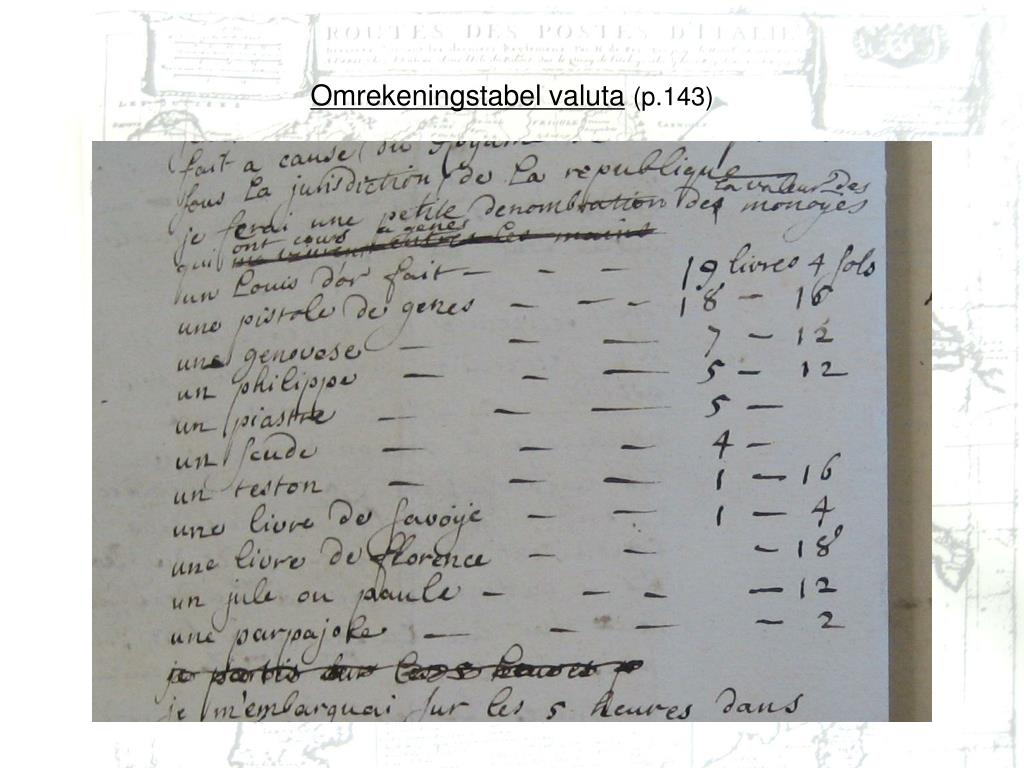 ROUTES DES POSTES D'ITALIE
Omrekeningstabel valuta (p.143)
fait a cause du Royaume de
sous la jurisdiction de la republique
la valeur des
je ferai une petite denombration des monoyes
ont cours a genes
qui entre les mains
un Louis d'or fait — — — 19 livres 4 sols
une pistole de genes — — — 18 — 16
une genovese — — — 7 — 12
un philippe — — — 5 — 12
un piastre — — — 5 —
un scude — — — 4 —
un teston — — — 1 — 16
une livre de savoye — — 1 — 4
une livre de florence — — — 18
un jule ou paule — — — — 12
une parpajole — — — — 2
je partis sur les 5 heures
je m'embarquai sur les 5 heures dans